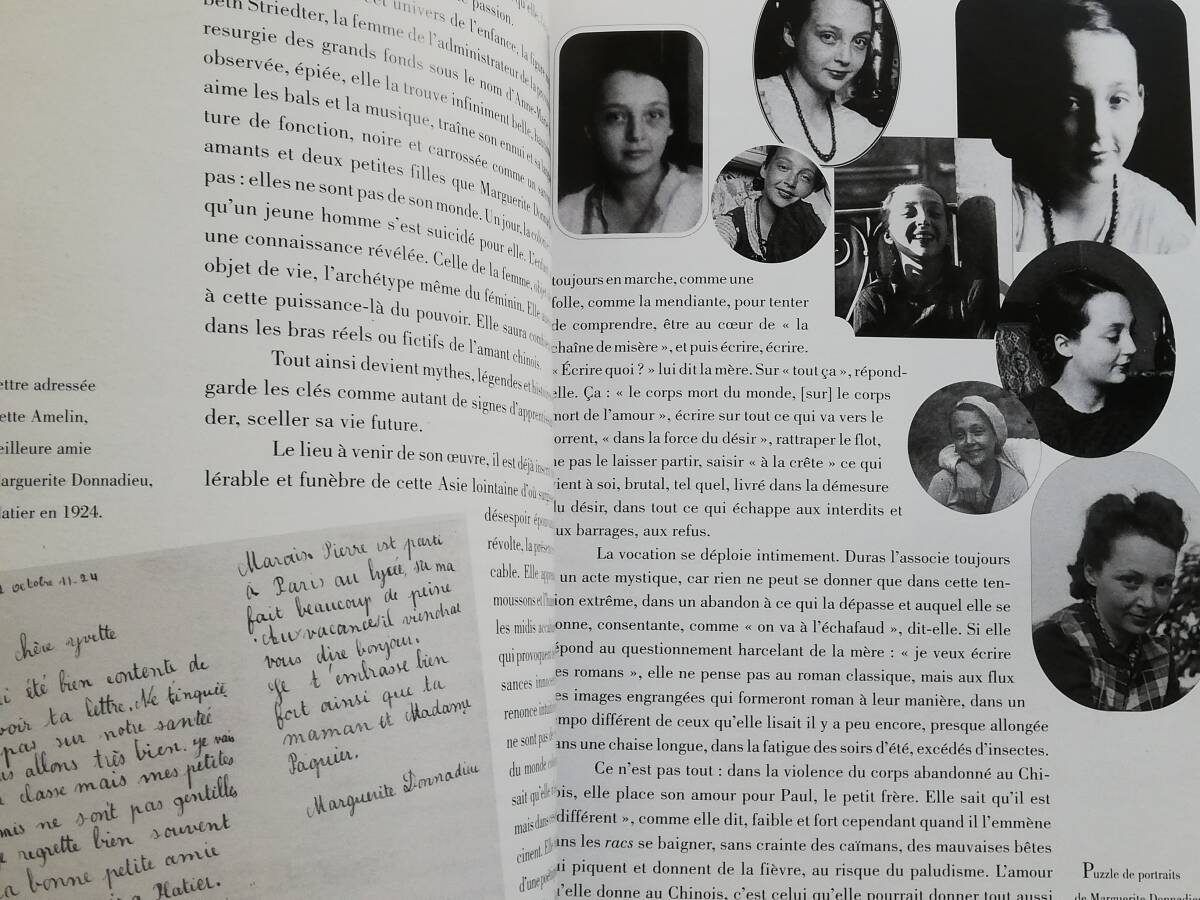 passion.
univers de l'enfance, la
beth Striedter, la femme de l'administrateur de la
resurgie des grands fonds sous le nom d'Anne-Marie
observée, épiée, elle la trouve infiniment belle,
aime les bals et la musique, traîne son ennui et sa
ture de fonction, noire et carrossée comme un
amants et deux petites filles que Marguerite
pas : elles ne sont pas de son monde. Un jour, la
qu'un jeune homme s'est suicidé pour elle.
une connaissance révélée. Celle de la femme,
objet de vie, l'archétype même du féminin. Elle
à cette puissance-là du pouvoir. Elle saura
dans les bras réels ou fictifs de l'amant chinois.
Tout ainsi devient mythes, légendes et
garde les clés comme autant de signes
der, sceller sa vie future.
Le lieu à venir de son œuvre, il est déjà
lérable et funèbre de cette Asie lointaine d'où
désespoir
révolte, la
cable. Elle
moussons et
les midis
qui provoquent
sances
renonce
ne sont pas
du monde
sait qu'elle
mais dans
cinent.
d'une
ettre adressée
ette Amelin,
eilleure amie
arguerite Donnadieu,
latier en 1924.
octobre 11-24
chère yvette
été bien contente de
voir ta lettre. Ne t'inquié
pas sur notre santé
allons très bien. je vais
classe mais mes petites
mis ne sont pas gentilles
regrette bien souvent
a bonne petite amie
Platier.
Marais. Pierre est parti
à Paris au lycée, su ma
fait beaucoup de peine
Au vacances il viendrai
vous dire bonjour.
je t'embrasse bien
fort ainsi que ta
maman et Madame
Paquier.
Marguerite Donnadieu
toujours en marche, comme une
folle, comme la mendiante, pour tenter
de comprendre, être au cœur de « la
chaîne de misère », et puis écrire, écrire.
« Écrire quoi ? » lui dit la mère. Sur « tout ça », répond-
elle. Ça : « le corps mort du monde, [sur] le corps
mort de l'amour », écrire sur tout ce qui va vers le
orrent, « dans la force du désir », rattraper le flot,
ne pas le laisser partir, saisir « à la crête » ce qui
ient à soi, brutal, tel quel, livré dans la démesure
du désir, dans tout ce qui échappe aux interdits et
ux barrages, aux refus.
La vocation se déploie intimement. Duras l'associe toujours
un acte mystique, car rien ne peut se donner que dans cette ten-
ion extrême, dans un abandon à ce qui la dépasse et auquel elle se
onne, consentante, comme « on va à l'échafaud », dit-elle. Si elle
épond au questionnement harcelant de la mère : « je veux écrire
es romans », elle ne pense pas au roman classique, mais aux flux
es images engrangées qui formeront roman à leur manière, dans un
empo différent de ceux qu'elle lisait il y a peu encore, presque allongée
ans une chaise longue, dans la fatigue des soirs d'été, excédés d'insectes.
Ce n'est pas tout : dans la violence du corps abandonné au Chi-
ois, elle place son amour pour Paul, le petit frère. Elle sait qu'il est
différent », comme elle dit, faible et fort cependant quand il l'emmène
ans les racs se baigner, sans crainte des caïmans, des mauvaises bêtes
ui piquent et donnent de la fièvre, au risque du paludisme. L'amour
u'elle donne au Chinois, c'est celui qu'elle pourrait donner tout aussi
Puzzle de portraits
de Marguerite Donnadieu